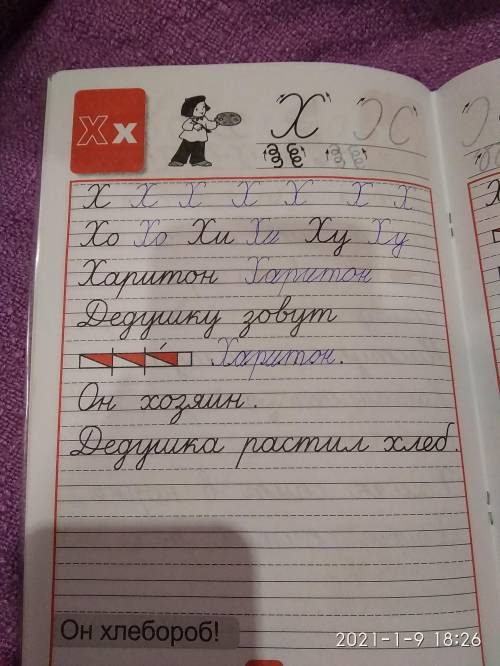 Х х Х
Х Х Х Х Х Х Х
Хо Хо Хи Хи Ху Ху
Харитон Харитон
Дедушку зовут
Харитон.
Он хозяин.
Дедушка растил хлеб.
Он хлебороб!
2021-1-9 18:26